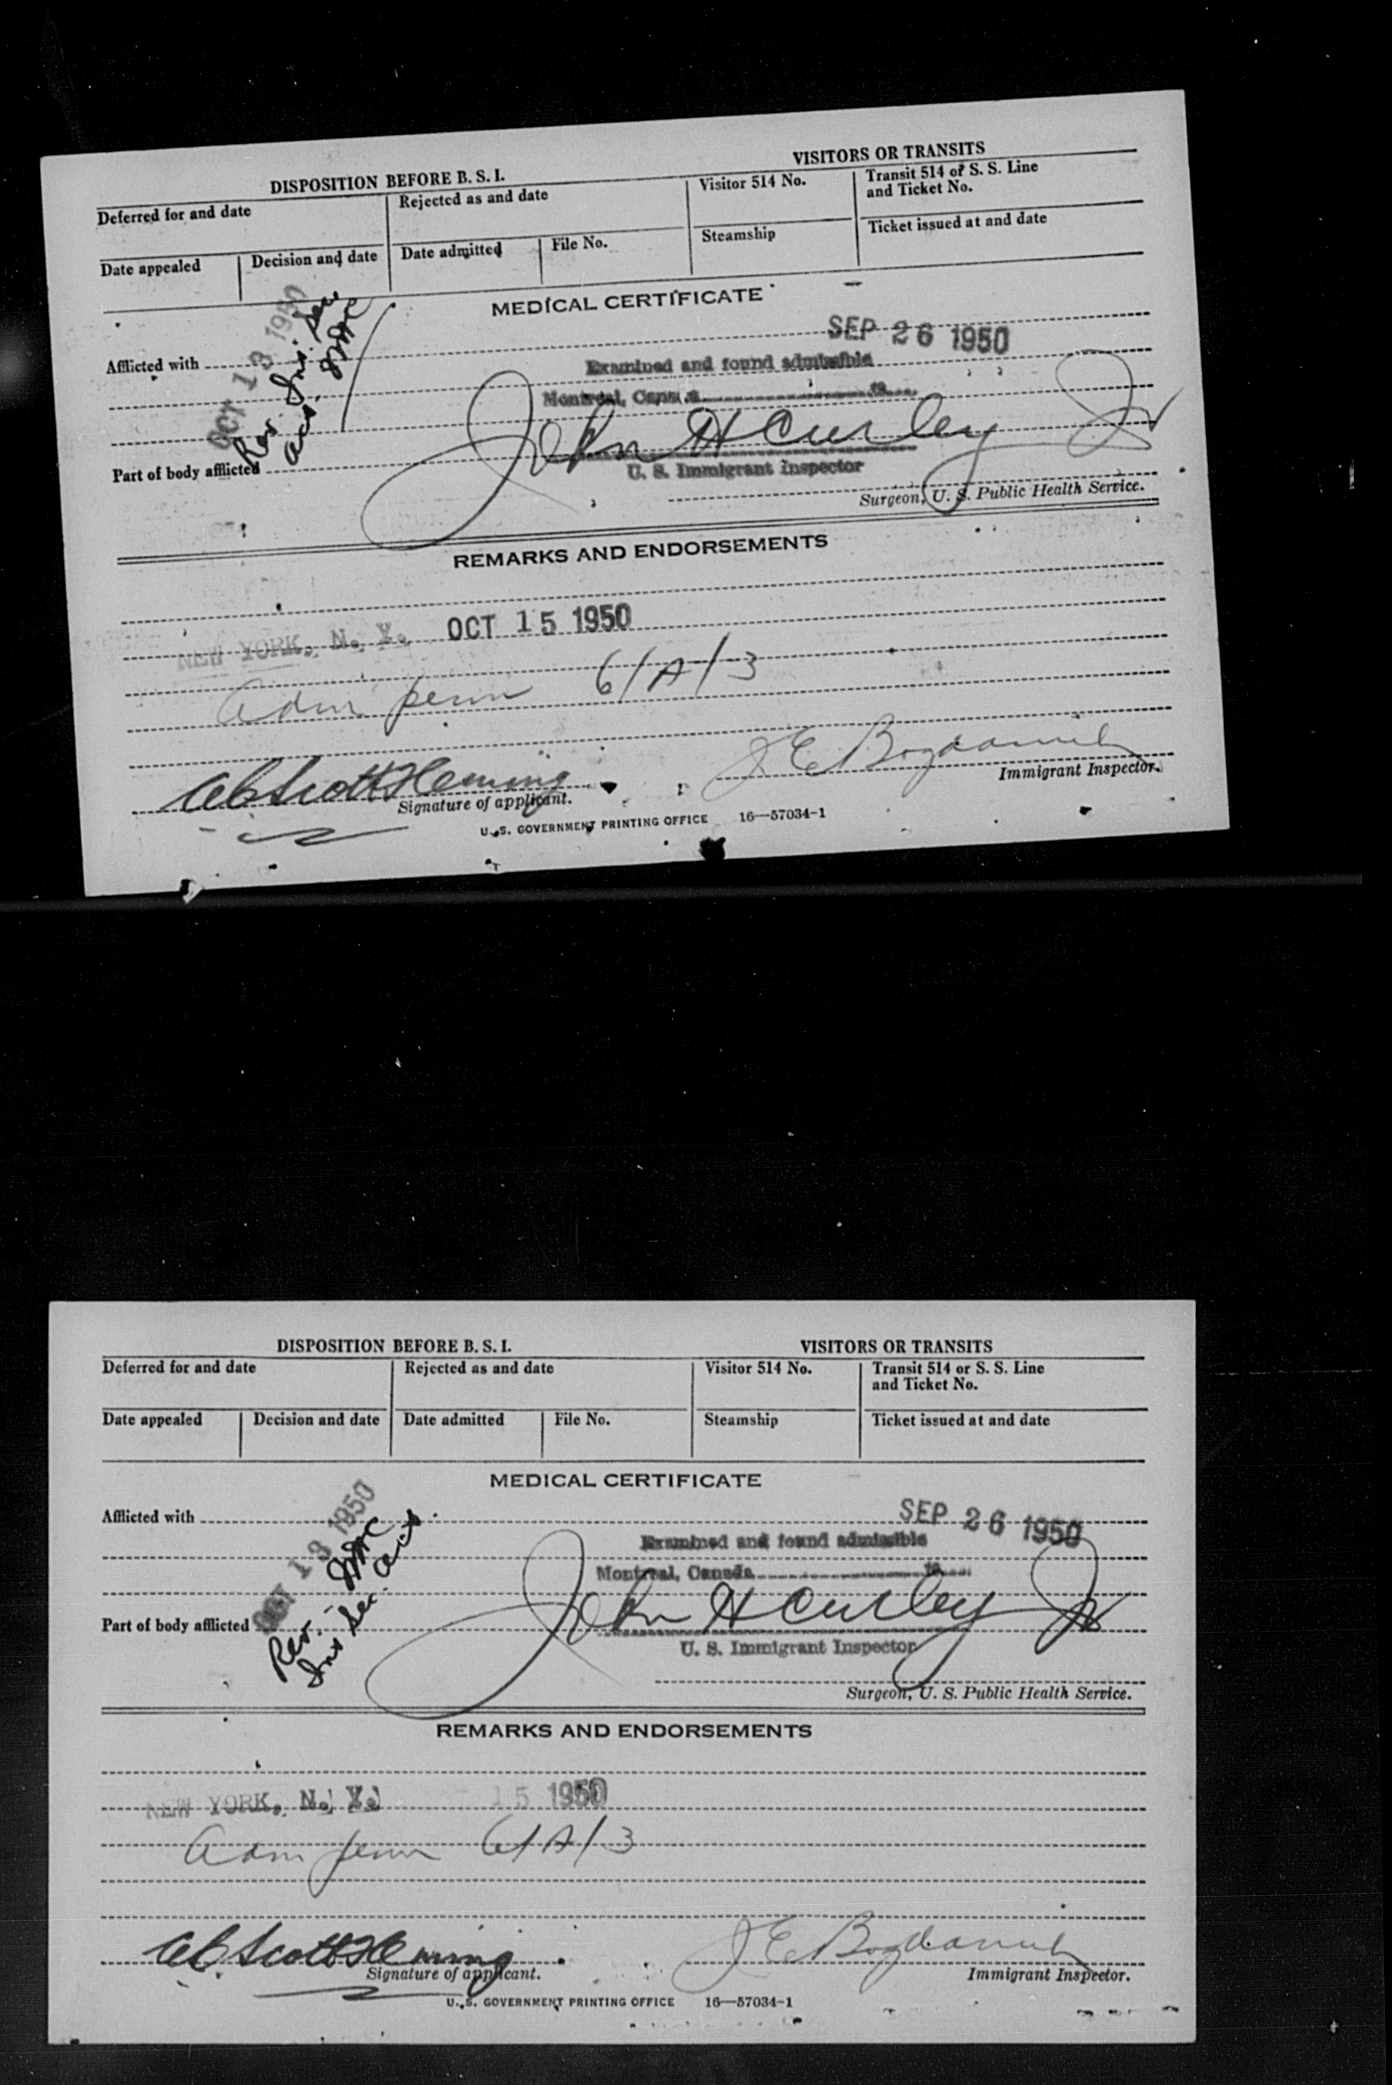 DISPOSITION BEFORE B. S. I.
VISITORS OR TRANSITS
Deferred for and date
Rejected as and date
Visitor 514 No.
Transit 514 or S. S. Line
and Ticket No.
Date appealed
Decision and date
Date admitted
File No.
Steamship
Ticket issued at and date
MEDICAL CERTIFICATE
OCT 13 1950
Rec. Ins. Sec.
SEP 26 1950
Afflicted with
Examined and found admissible
Montreal, Canada 19
John H Curley Jr
Part of body afflicted
U. S. Immigrant Inspector
Surgeon, U. S. Public Health Service.
REMARKS AND ENDORSEMENTS
NEW YORK, N. Y. OCT 15 1950
Adm perm 6/A/3
J E
Immigrant Inspector.
Scott Heming
Signature of applicant.
U. S. GOVERNMENT PRINTING OFFICE 16—57034-1
DISPOSITION BEFORE B. S. I.
VISITORS OR TRANSITS
Deferred for and date
Rejected as and date
Visitor 514 No.
Transit 514 or S. S. Line
and Ticket No.
Date appealed
Decision and date
Date admitted
File No.
Steamship
Ticket issued at and date
MEDICAL CERTIFICATE
OCT 13 1950
Rec.
Ins Sec.
SEP 26 1950
Afflicted with
Examined and found admissible
Montreal, Canada 19
John H Curley Jr
Part of body afflicted
U. S. Immigrant Inspector
Surgeon, U. S. Public Health Service.
REMARKS AND ENDORSEMENTS
NEW YORK, N. Y. 15 1950
Adm perm 6/A/3
J E
Immigrant Inspector.
Scott Heming
Signature of applicant.
U. S. GOVERNMENT PRINTING OFFICE 16—57034-1